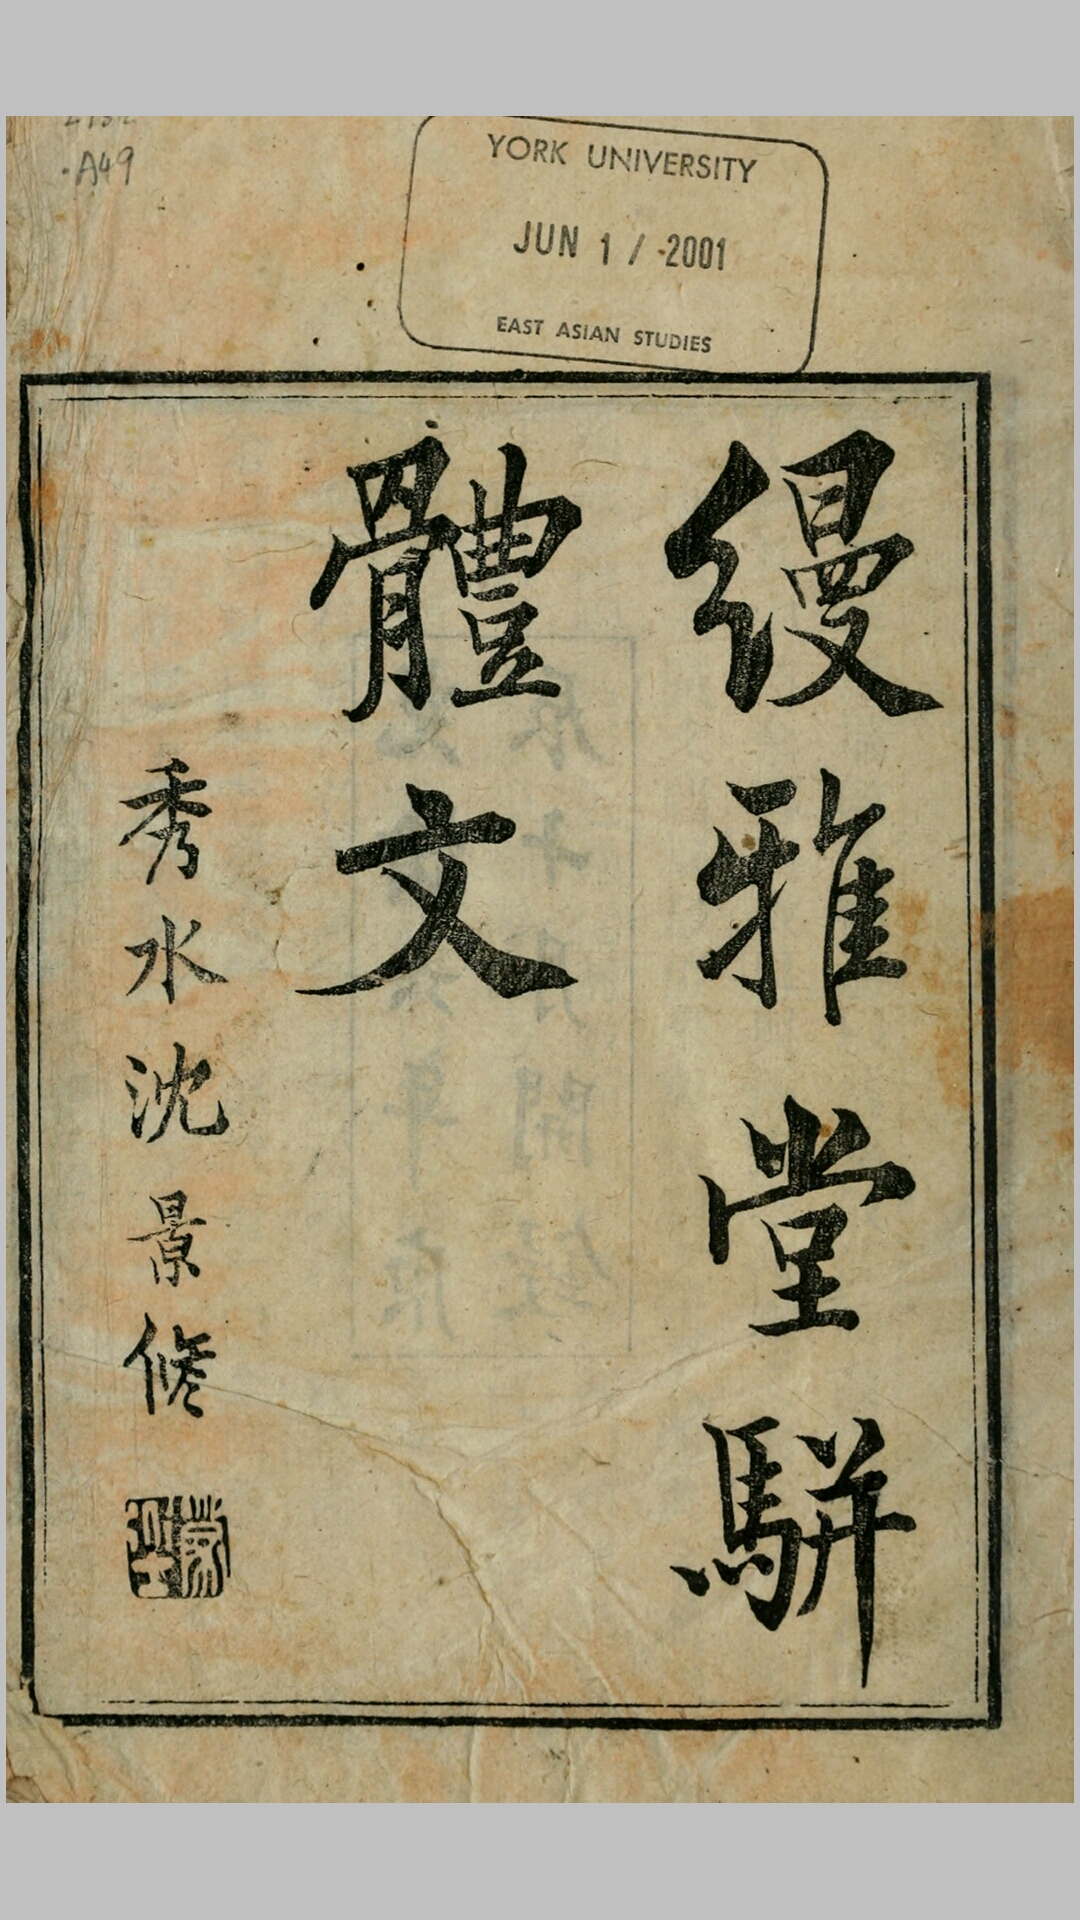 .A49
YORK UNIVERSITY
JUN 1 / 2001
EAST ASIAN STUDIES
縵雅堂駢
體文
秀水沈景修